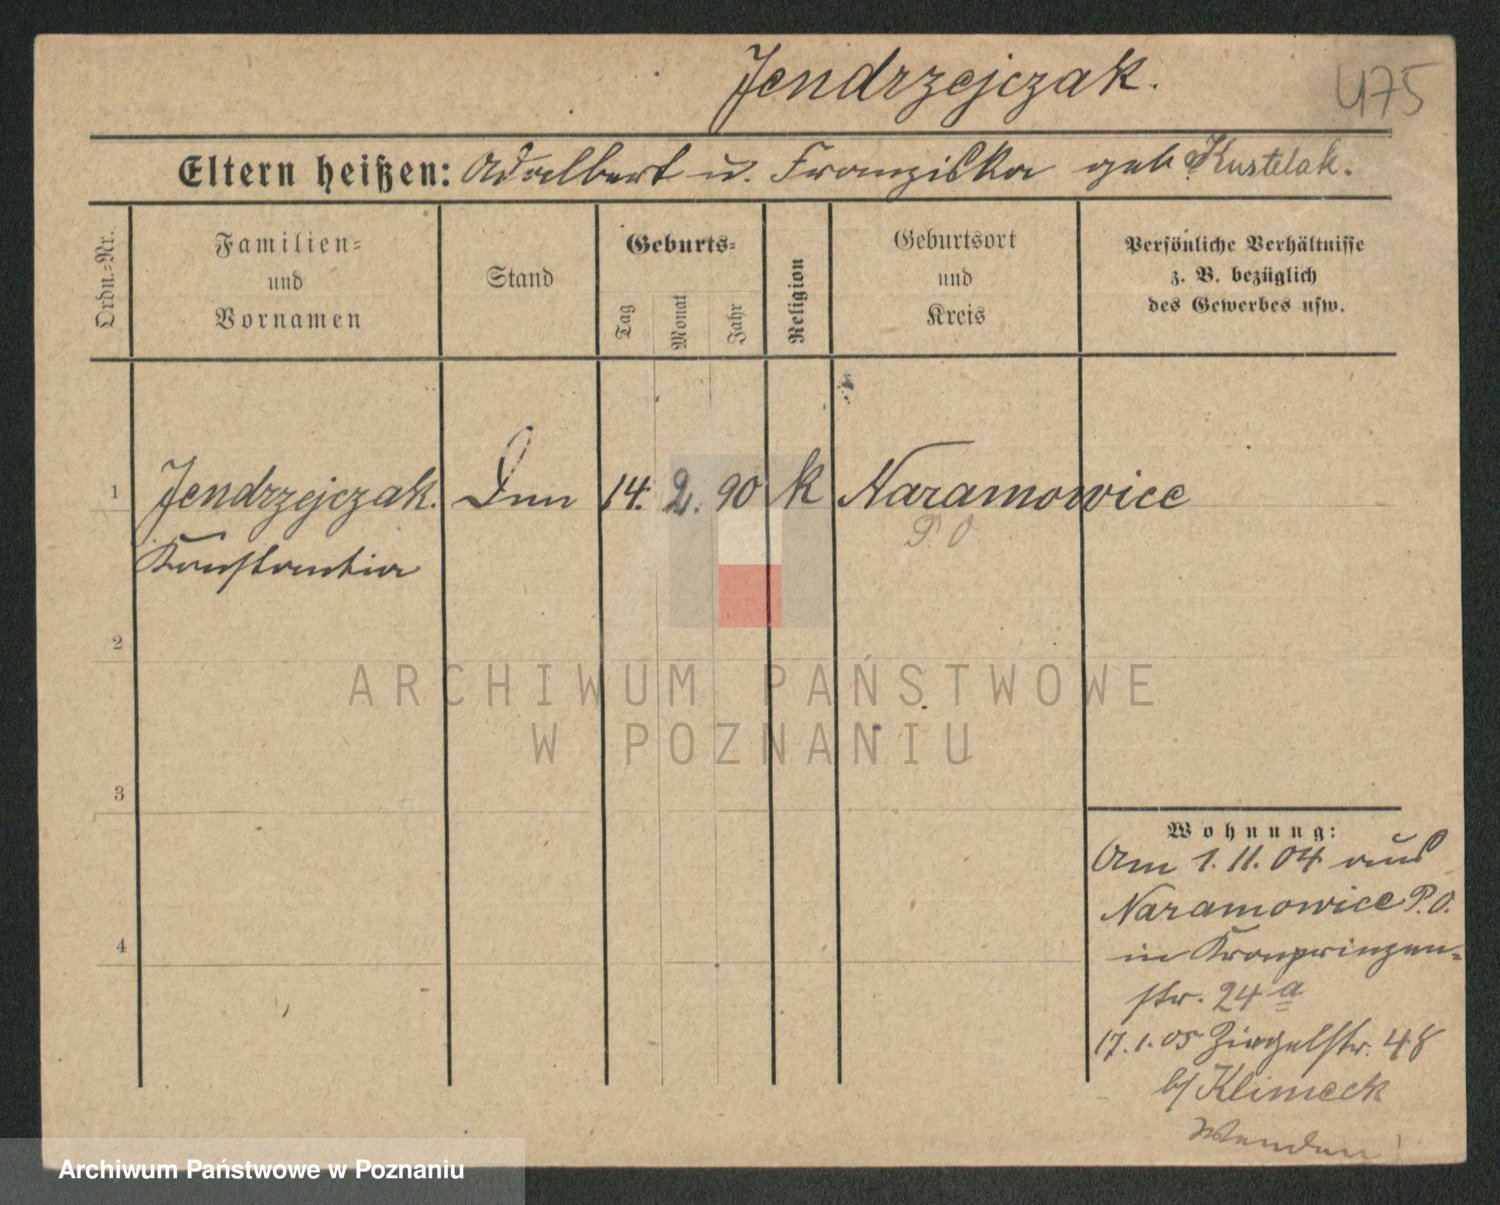 Jendrzejczak.
475
Eltern heißen: Adalbert u. Franziska geb Kustelak.
Ordn.=Nr.
Familien=
und
Vornamen
Stand
Geburts=
Tag
Monat
Jahr
Religion
Geburtsort
und
Kreis
Persönliche Verhältnisse
z. B. bezüglich
des Gewerbes usw.
1 Jendrzejczak. 14. 2. 90 k Naramowice
P. O
Konstantia
2
3
4
Wohnung:
Am 1. 11. 04 aus
Naramowice P. O.
in Kronprinzen-
str. 24 a
17. 1. 05 Ziegelstr. 48
b/ Klimeck
ARCHIWUM PAŃSTWOWE
W POZNANIU
Archiwum Państwowe w Poznaniu